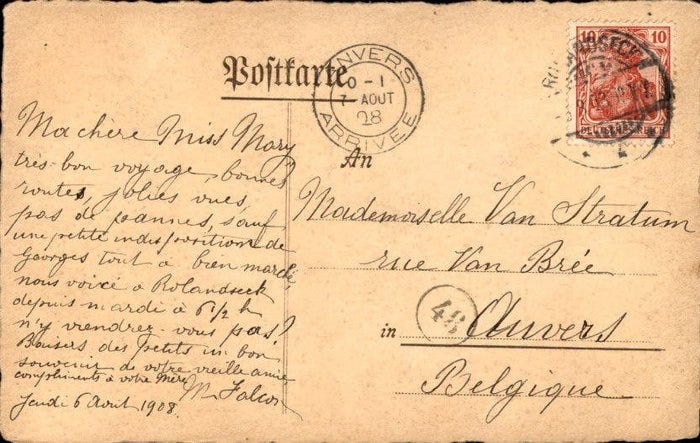 Postkarte
ANVERS
0-1
7 AOUT
08
ARRIVÉE
10 10
ROLANDSECK
An
Ma chère Miss Mary
très bon voyage, bonnes
routes, jolies vues,
pas de pannes, sauf
une petite indisposition de
Georges tout a bien marché,
nous voici à Rolandseck
depuis mardi à 6 1/2 h
n'y viendrez-vous pas?
Baisers des petits un bon
souvenir de votre vieille amie
compliments à votre mère
M Falcon
Jeudi 6 Août 1908.
Mademoiselle Van Stratum
rue Van Brée
48
in Anvers
Belgique